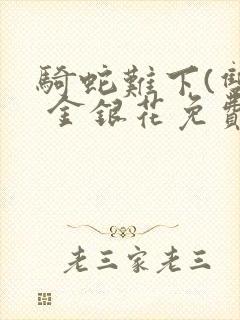 騎蛇難下(雙
金銀花免費
老三家老三